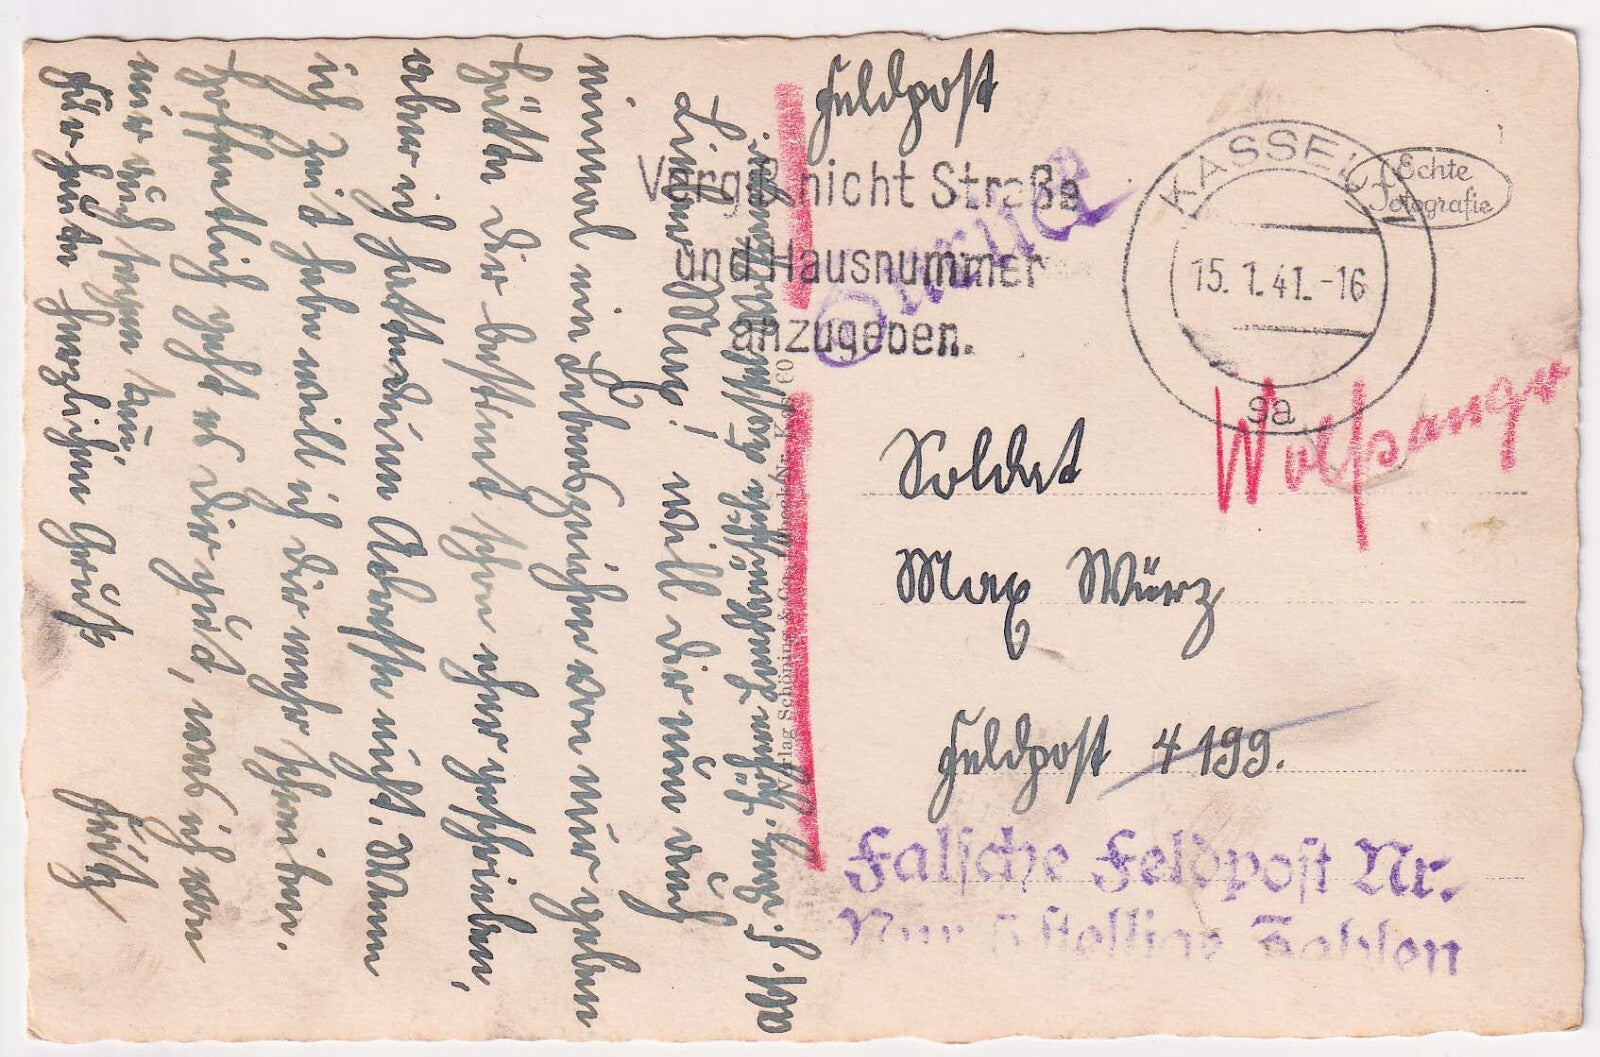 Feldpost
Vergiß nicht Straße
und Hausnummer
anzugeben.
Zurück
KASSEL
15.1.41.-16
ga
Echte
Fotografie
Wolfsanger
Soldat
Max Würz
Feldpost 4199.
Falsche Feldpost Nr.
Nur 5 stellige Zahlen
Verlag Schöning & Co., Lübeck Nr. Kas 60
Abs. F. Kassel
Lieber Max! will dir nun auch
einmal ein Lebenszeichen von mir geben
hätte dir bestimmt schon eher geschrieben,
aber ich hatte deine Adresse nicht. Wenn
ich Zeit habe will ich dir mehr schreiben.
Hoffentlich geht es dir gut, was ich von
mir auch sagen kann.
Die herzlichen Grüße
Fritz